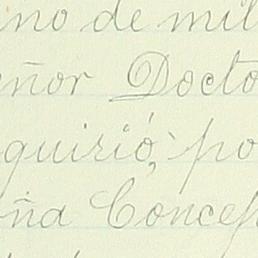 no de mil
eñor Docto
quirió, po
ña Concep